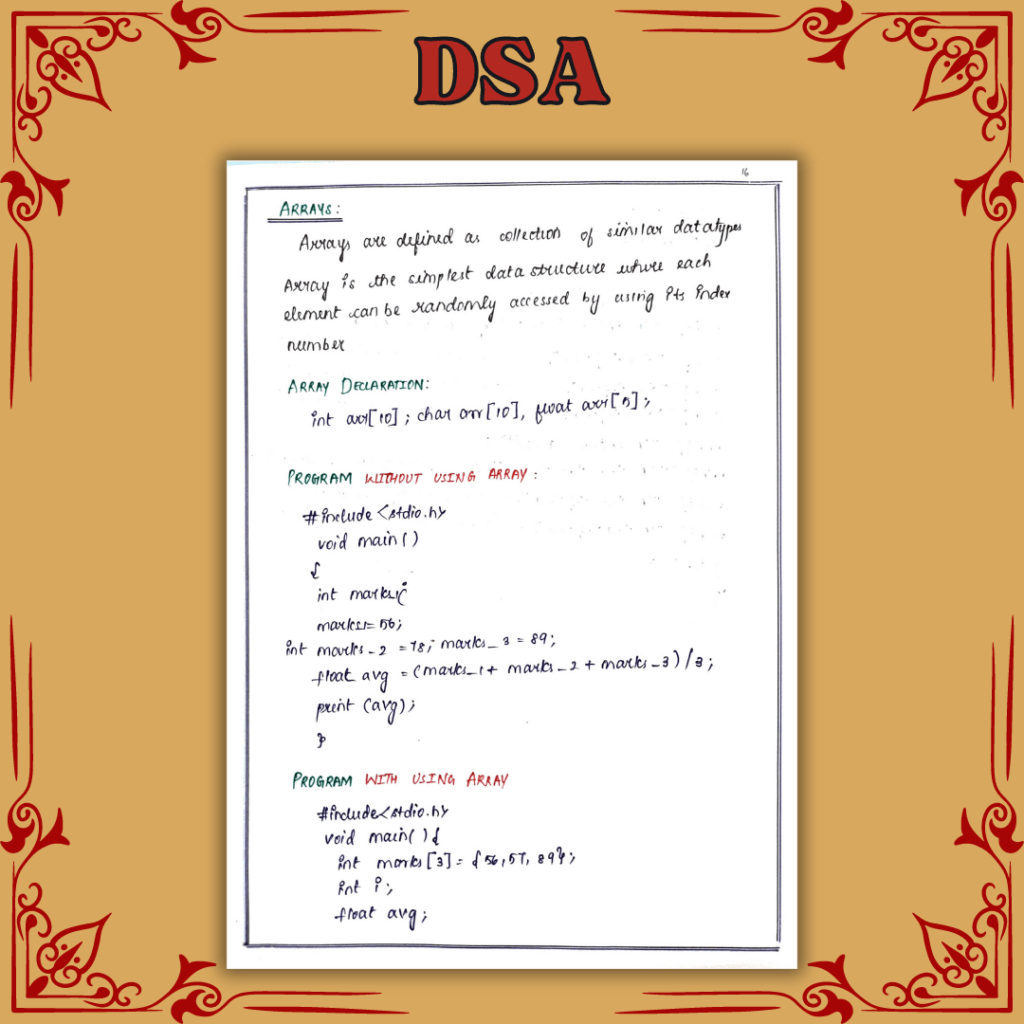 DSA
16
ARRAYS:
Arrays are defined as collection of similar datatypes
Array is the simplest data structure where each
element can be randomly accessed by using its index
number
ARRAY DECLARATION:
int arr[10]; char arr[10], float arr[5];
PROGRAM WITHOUT USING ARRAY:
#include <stdio.h>
void main()
{
int marks_1;
marks_1 = 56;
int marks_2 = 78; marks_3 = 89;
float avg = (marks_1 + marks_2 + marks_3)/3;
print (avg);
}
PROGRAM WITH USING ARRAY
#include<stdio.h>
void main(){
int marks[3] = {56, 57, 89};
int i;
float avg;